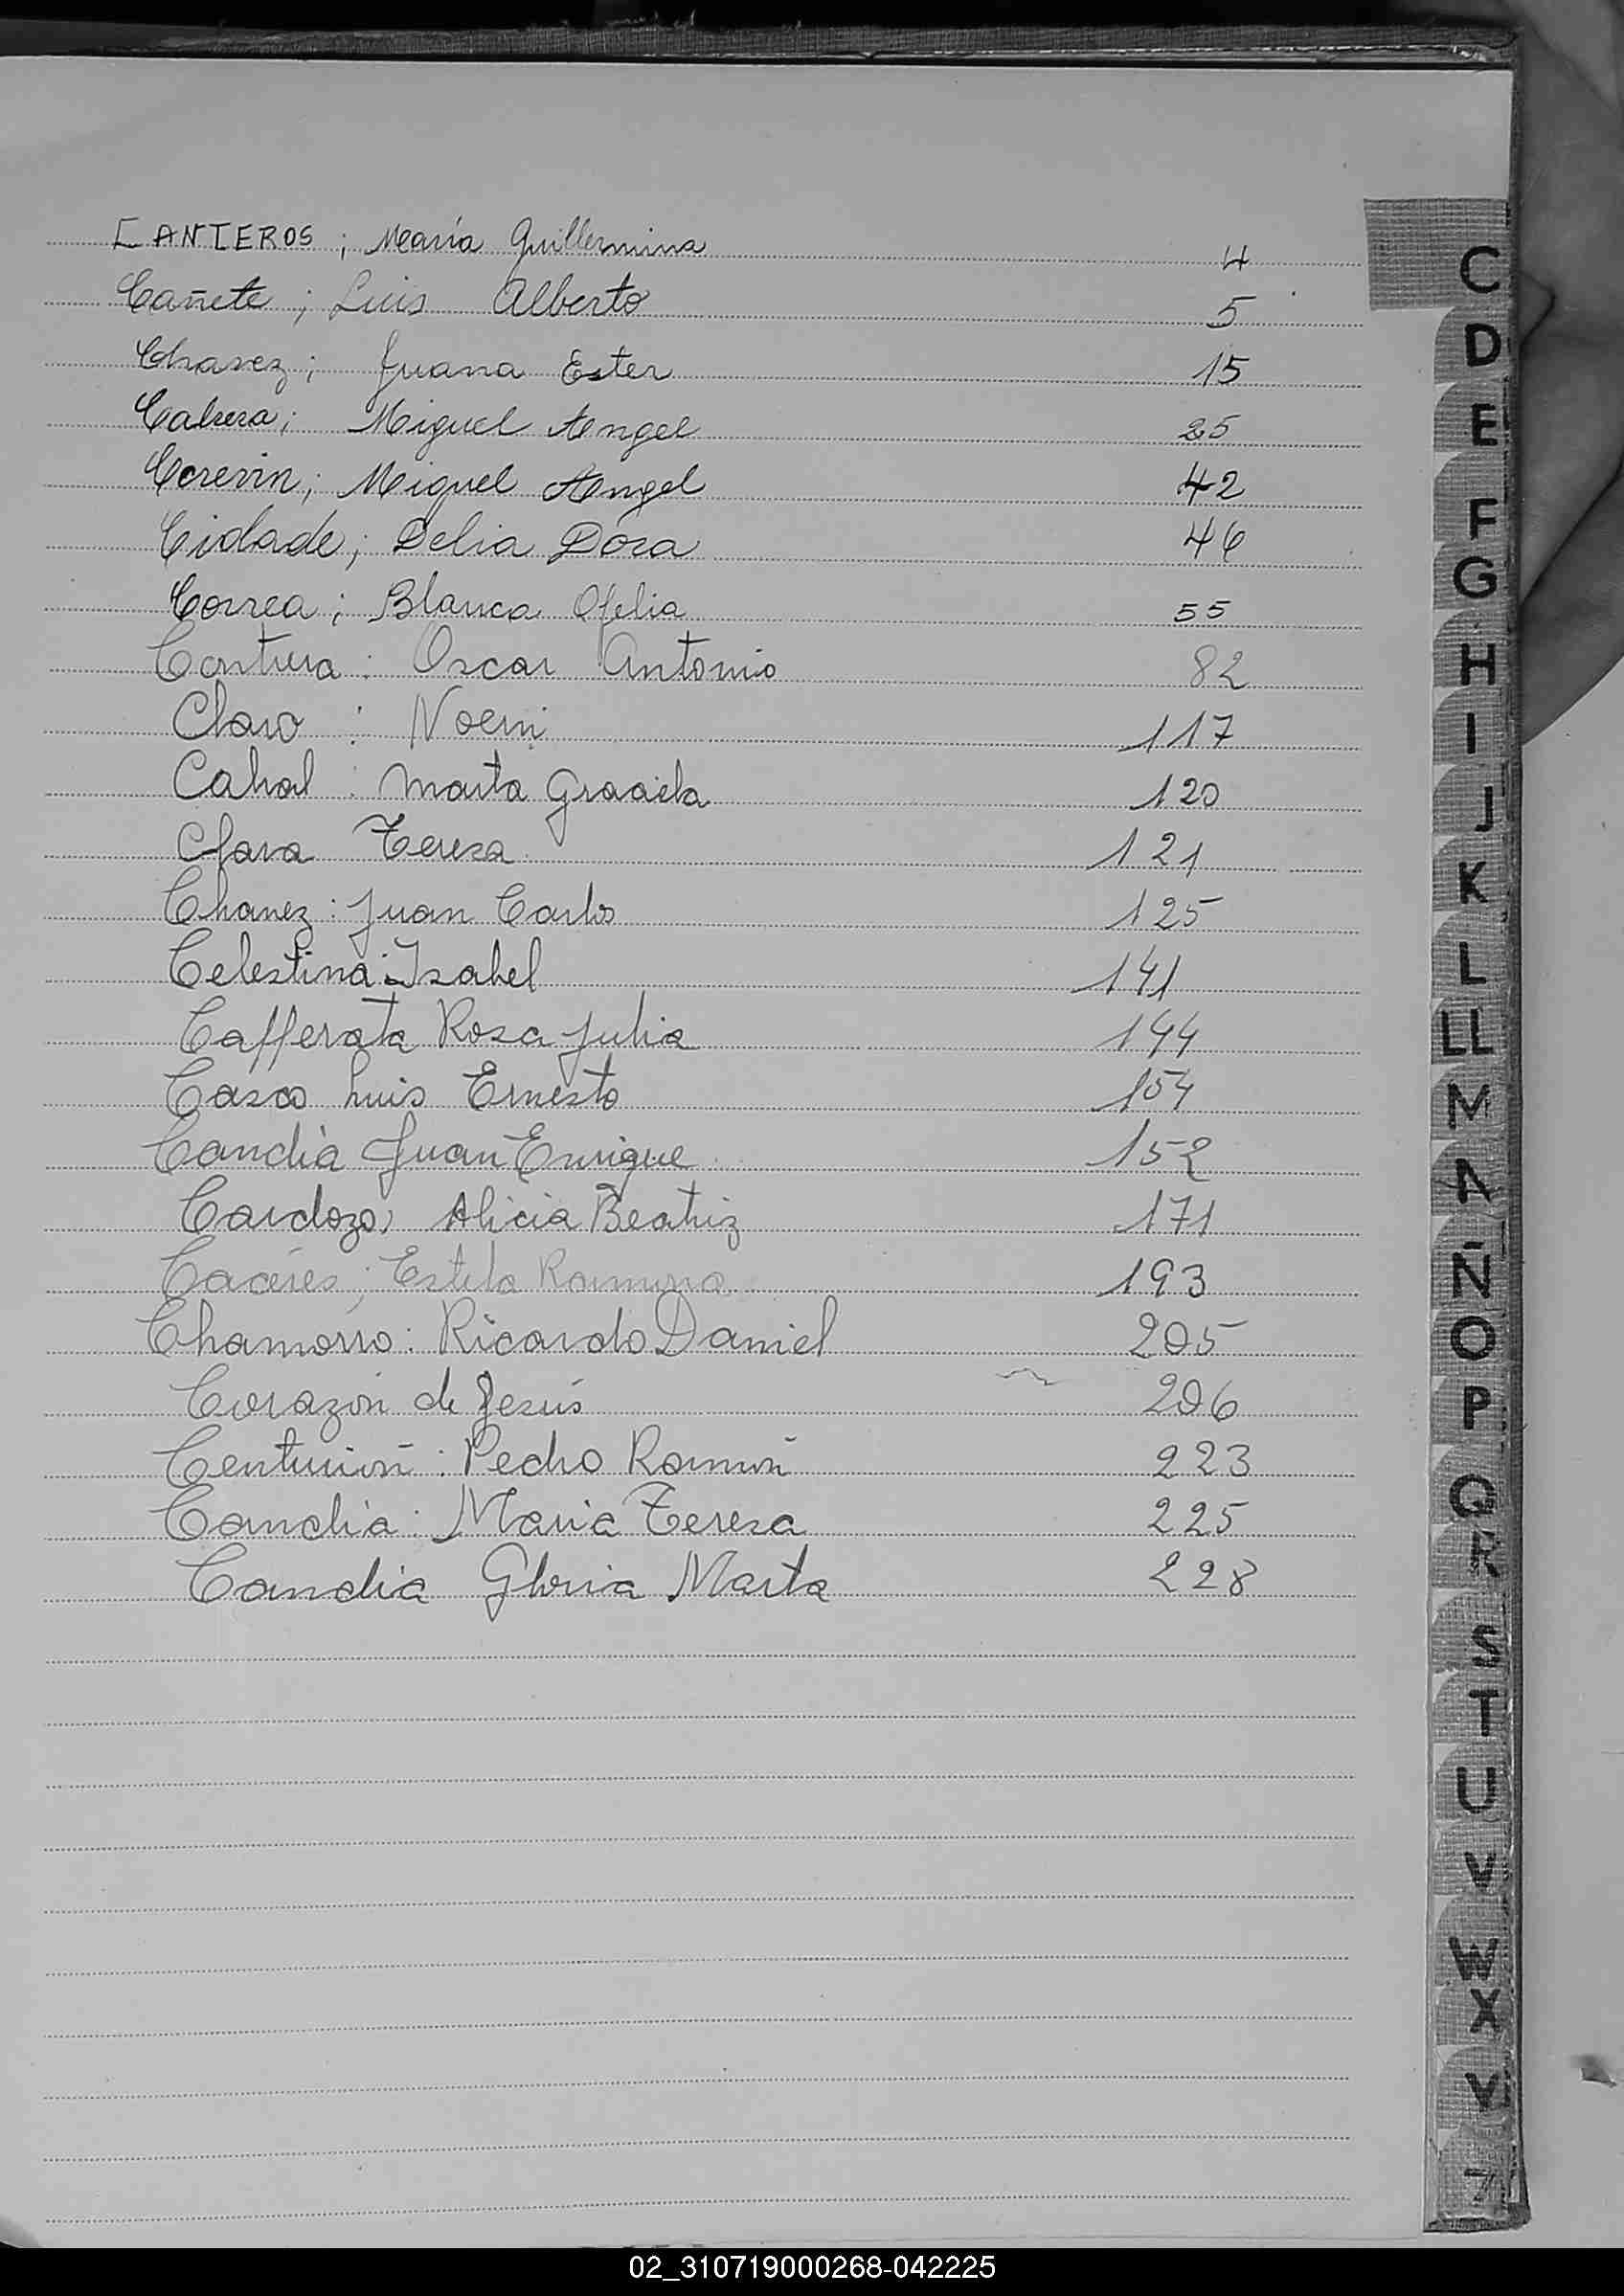 CANTEROS ; María Guillermina 4
Cañete ; Luis Alberto 5
Chavez ; Juana Ester 15
Cabrera ; Miguel Angel 25
Cerevin ; Miguel Angel 42
Cidade ; Delia Dora 46
Correa ; Blanca Ofelia 55
Contrera : Oscar Antonio 82
Claro : Noemi 117
Cabral : Marta Graciela 120
Clara Teresa 121
Chavez : Juan Carlos 125
Celestina : Isabel 141
Cafferata Rosa Julia 144
Casco Luis Ernesto 154
Candia Juan Enrique 152
Cardozo, Alicia Beatriz 171
Caceres ; Estela Ramona 193
Chamorro : Ricardo Daniel 205
Corazón de Jesús 206
Centurión : Pedro Ramón 223
Candia : Maria Teresa 225
Candia Gloria Marta 228
C
D
E
F
G
H
I
J
K
L
LL
M
N
Ñ
O
P
Q
R
S
T
U
V
W
X
Y
Z
02_310719000268-042225